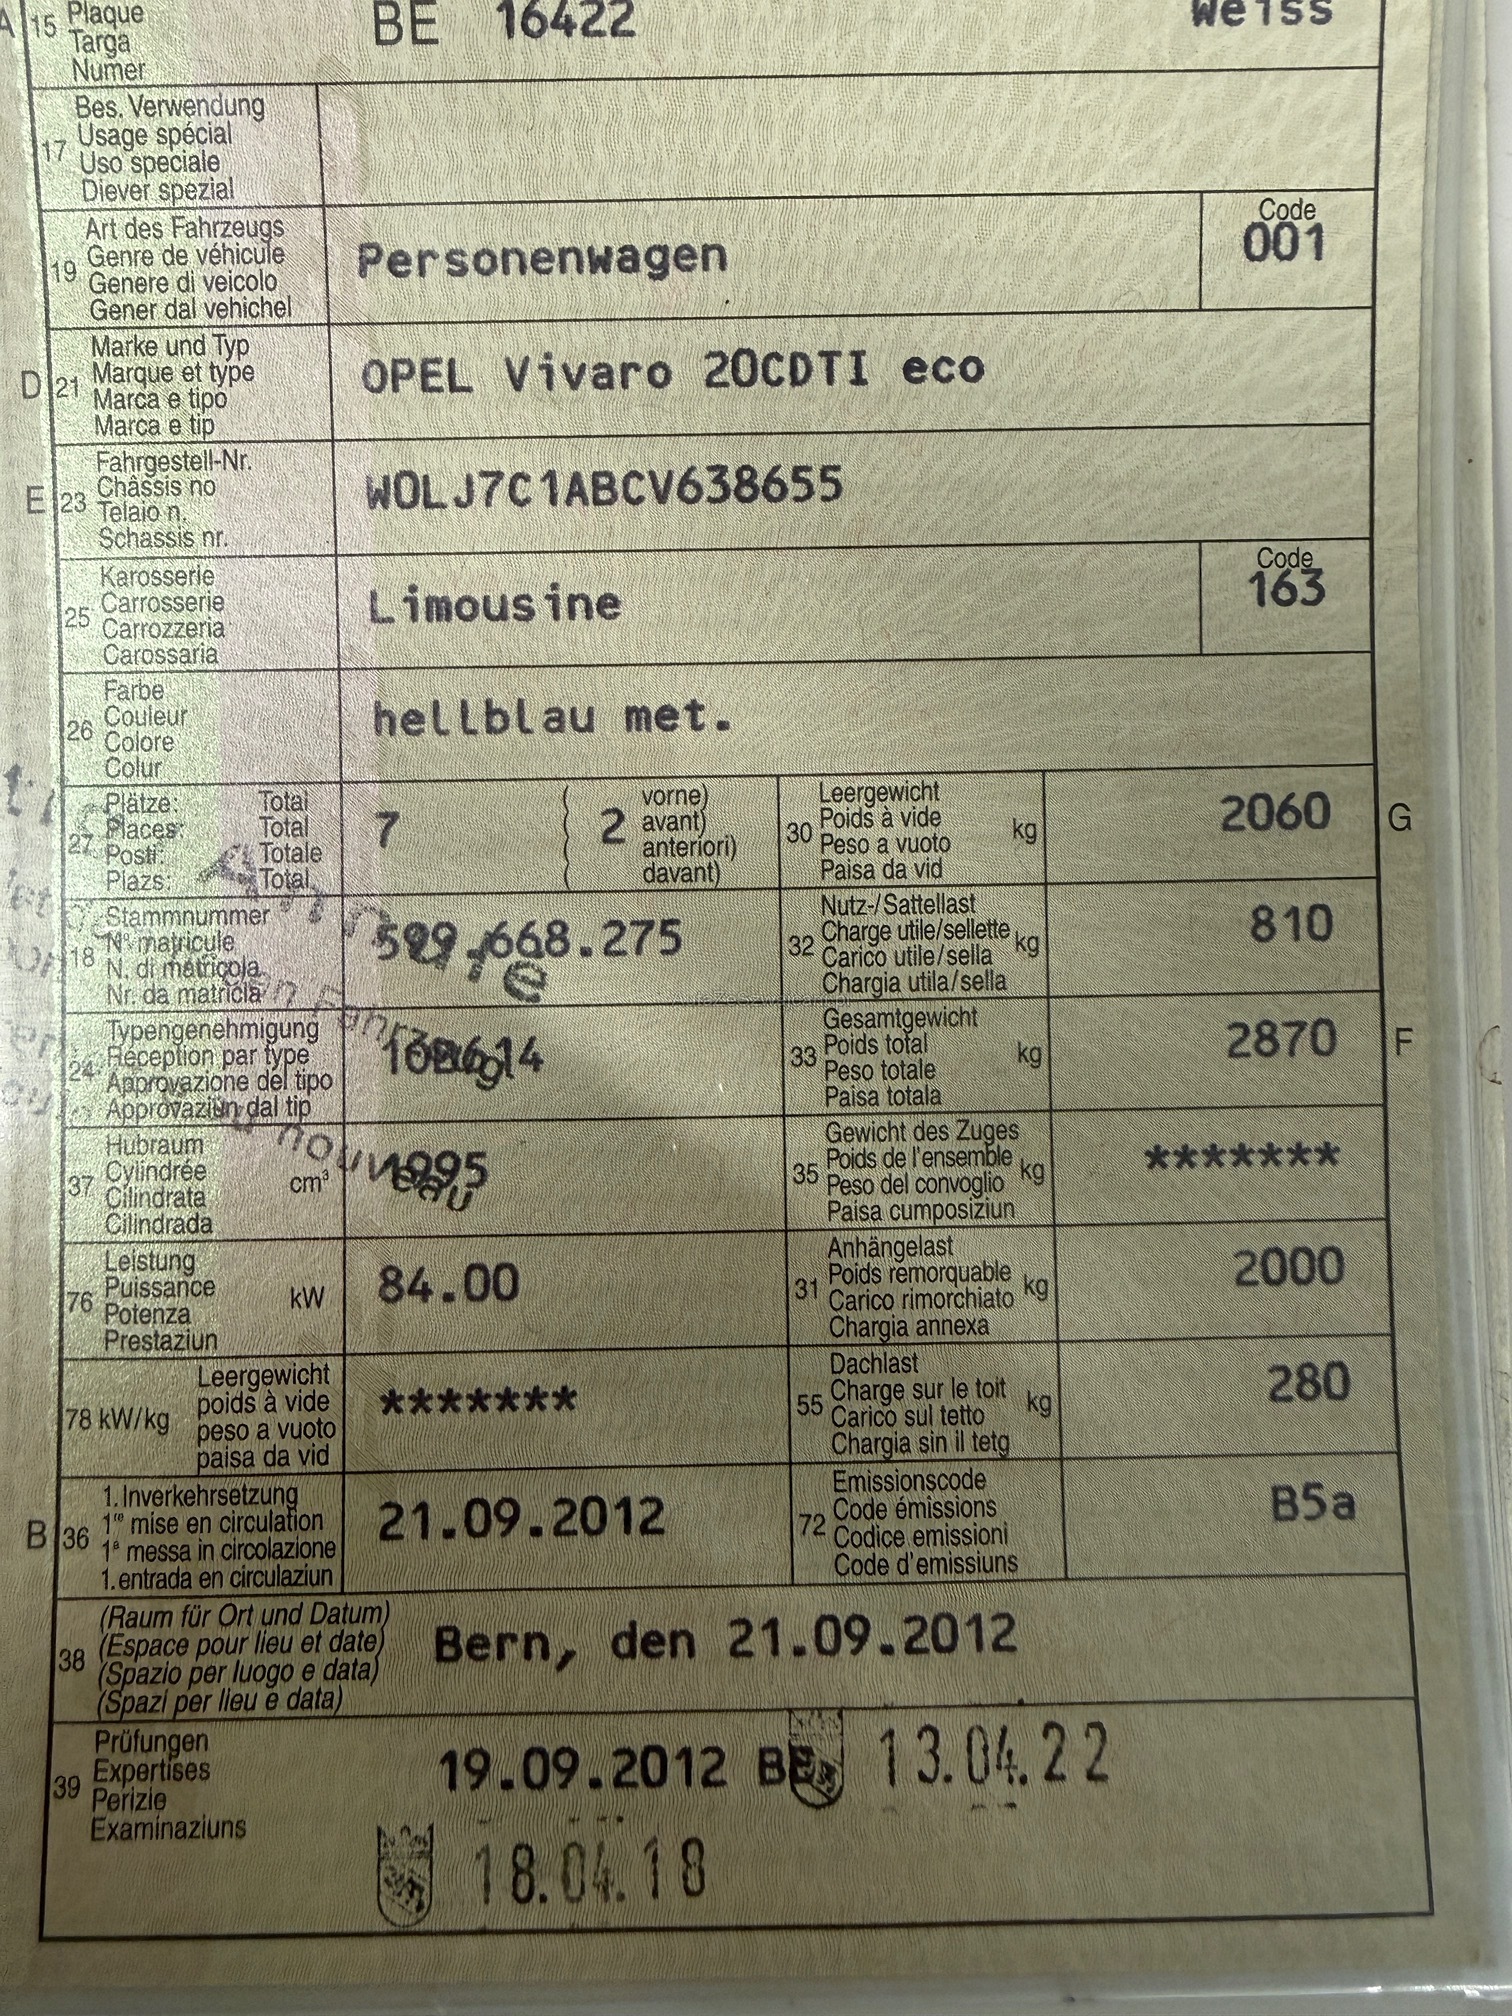 A 15 Plaque BE 16422 Weiss
Targa
Numer
Bes. Verwendung
17 Usage spécial
Uso speciale
Diever spezial
Art des Fahrzeugs Code
19 Genre de véhicule Personenwagen 001
Genere di veicolo
Gener dal vehichel
Marke und Typ
D 21 Marque et type OPEL Vivaro 20CDTI eco
Marca e tipo
Marca e tip
Fahrgestell-Nr.
E 23 Châssis no W0LJ7C1ABCV638655
Telaio n.
Schassis nr.
Karosserie Code
25 Carrosserie Limousine 163
Carrozzeria
Carossaria
Farbe
26 Couleur hellblau met.
Colore
Colur
Plätze: Total 7 ( vorne) Leergewicht
27 Places: Total ( 2 avant) 30 Poids à vide kg 2060 G
Posti: Totale ( anteriori) Peso a vuoto
Plazs: Total ( davant) Paisa da vid
Annulé
Stammnummer Nutz-/Sattellast
18 N° matricule 599.668.275 32 Charge utile/sellette kg 810
N. di matricola Carico utile/sella
Nr. da matricla Chargia utila/sella
en Fahrzeug
Typengenehmigung Gesamtgewicht
24 Réception par type 33 Poids total kg 2870 F
Approvazione del tipo Peso totale
Approvaziun dal tip Paisa totala
nouveau
Hubraum Gewicht des Zuges
37 Cylindrée cm³ 1995 35 Poids de l'ensemble kg *******
Cilindrata Peso del convoglio
Cilindrada Paisa cumposiziun
Leistung Anhängelast
76 Puissance kW 84.00 31 Poids remorquable kg 2000
Potenza Carico rimorchiato
Prestaziun Chargia annexa
Leergewicht Dachlast
78 kW/kg poids à vide ******* 55 Charge sur le toit kg 280
peso a vuoto Carico sul tetto
paisa da vid Chargia sin il tetg
1. Inverkehrsetzung Emissionscode
B 36 1re mise en circulation 21.09.2012 72 Code émissions B5a
1a messa in circolazione Codice emissioni
1. entrada en circulaziun Code d'emissiuns
(Raum für Ort und Datum)
38 (Espace pour lieu et date) Bern, den 21.09.2012
(Spazio per luogo e data)
(Spazi per lieu e data)
Prüfungen
39 Expertises 19.09.2012 BE 13.04.22
Perizie
Examinaziuns
18.04.18